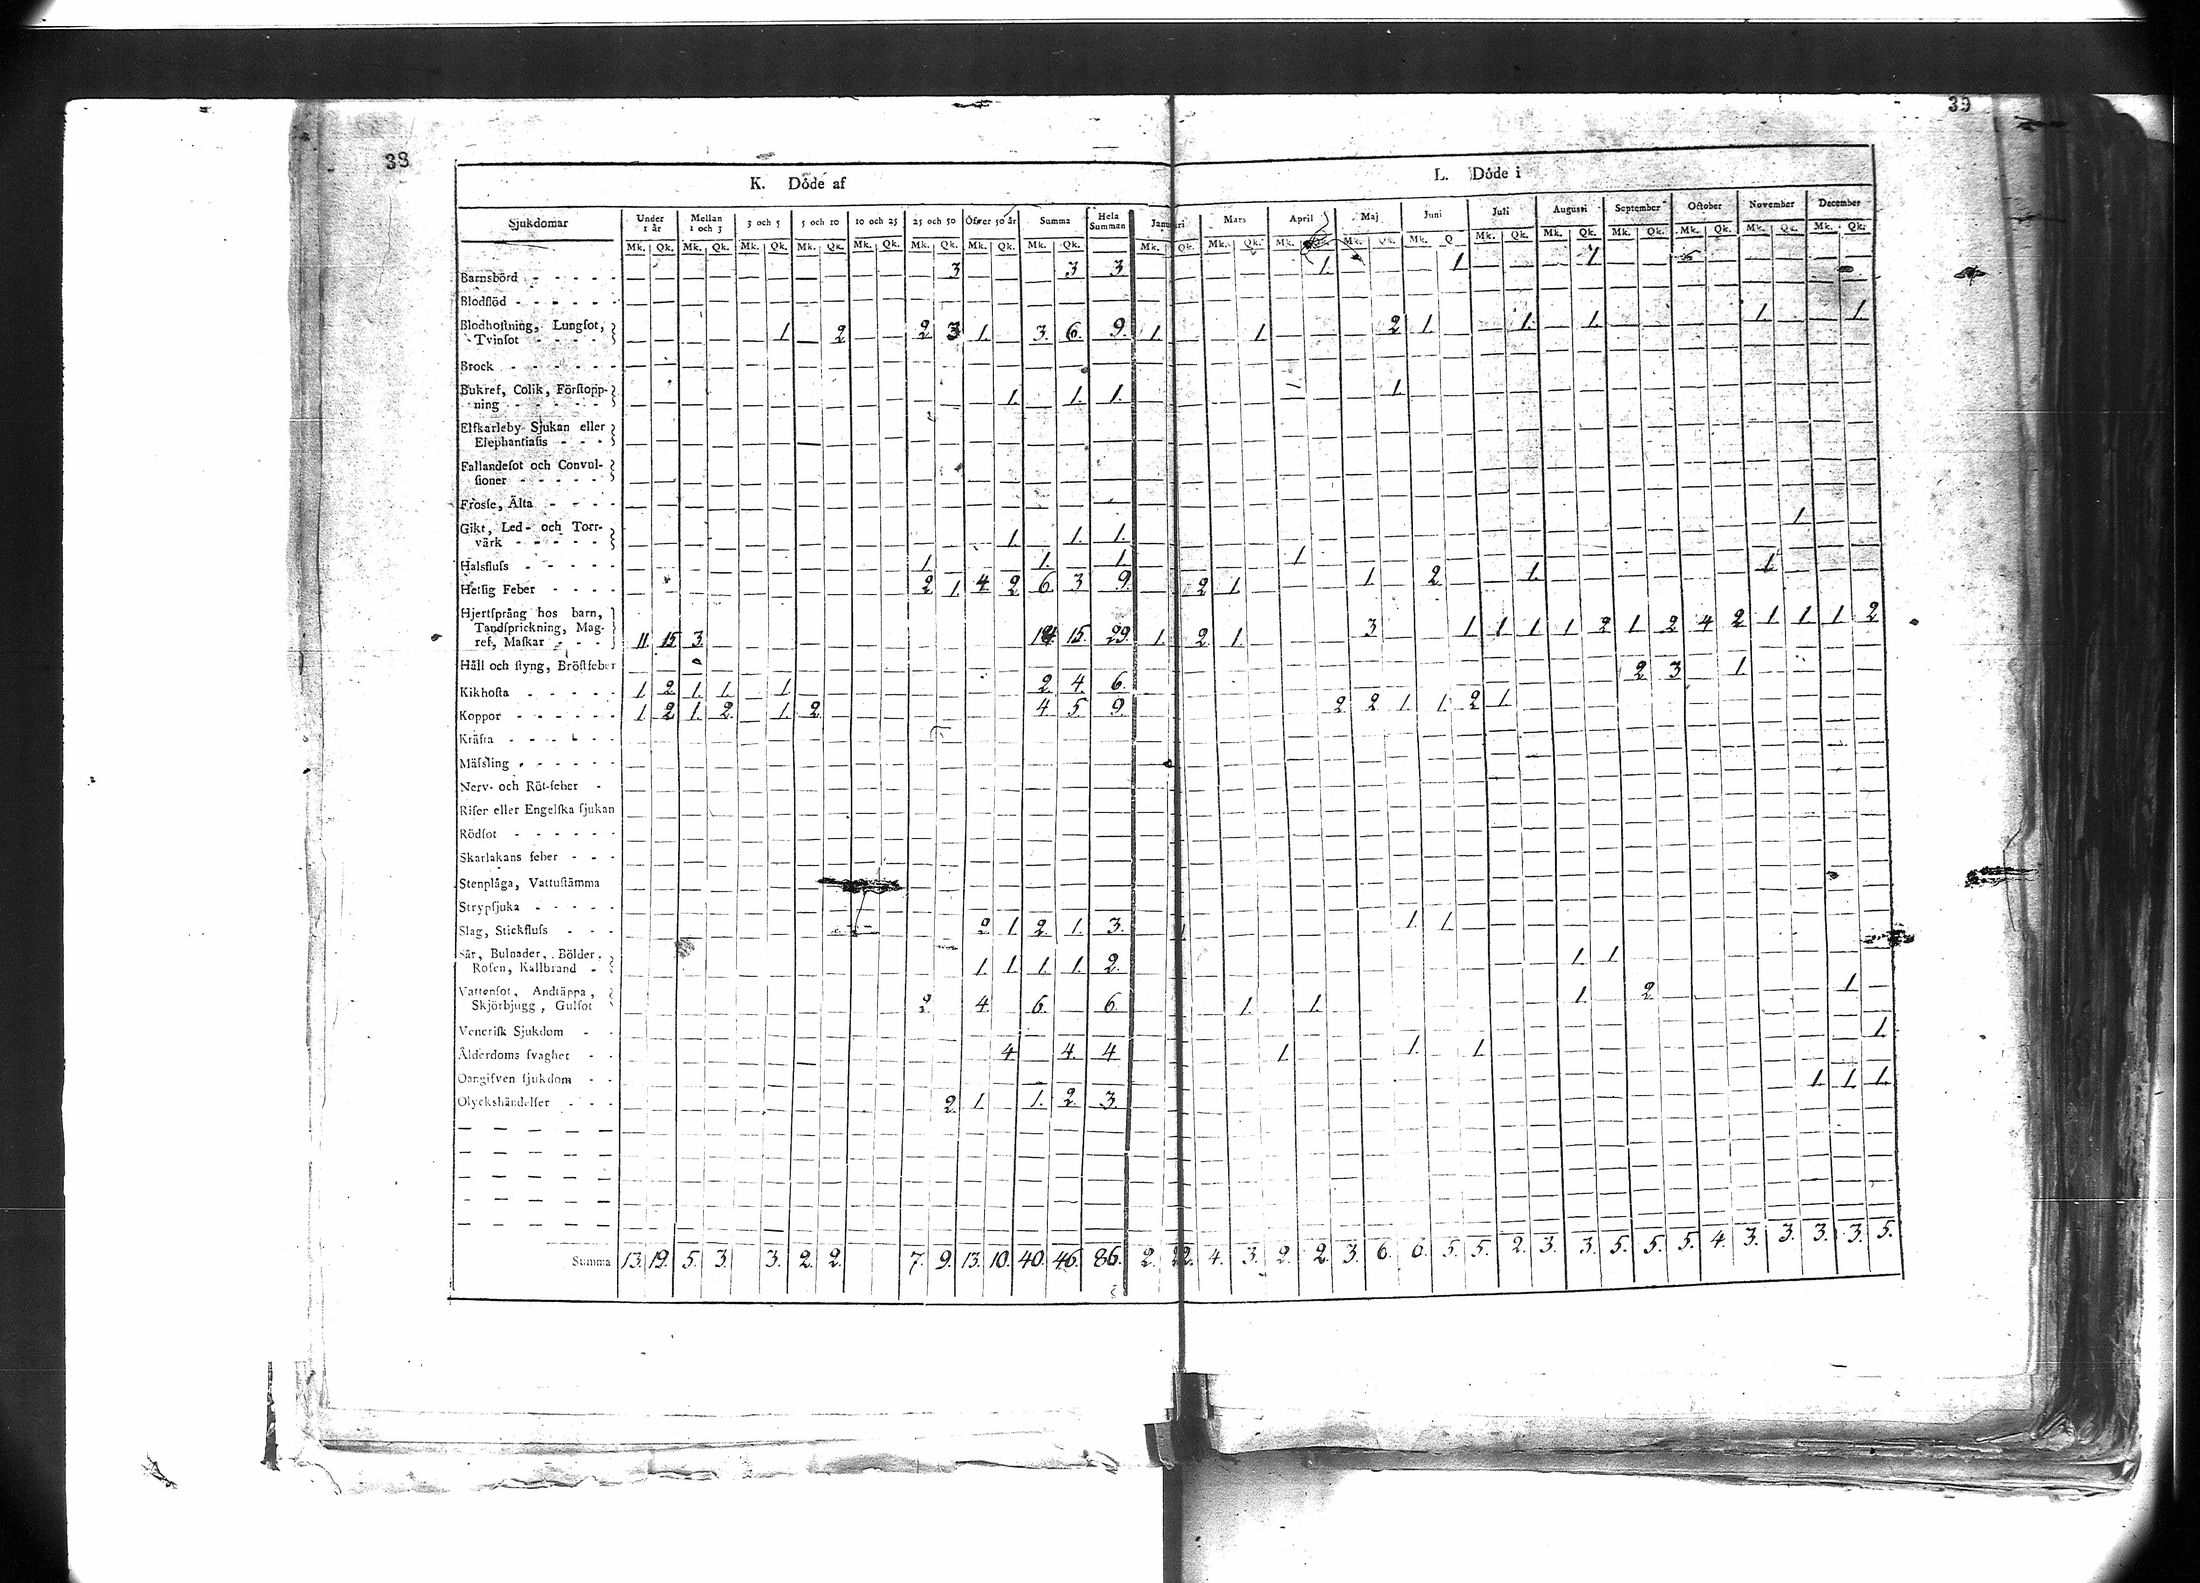 38
39
K. Döde af
L. Döde i
Sjukdomar Under 1 år Mellan 1 och 3 3 och 5 5 och 10 10 och 25 25 och 50 Öfver 50 år Summa Hela Summan Januari Mars April Maj Juni Juli Augusti September October November December
Mk. Qk. Mk. Qk. Mk. Qk. Mk. Qk. Mk. Qk. Mk. Qk. Mk. Qk. Mk. Qk. Mk. Qk. Mk. Qk. Mk. Qk. Mk. Qk. Mk. Q Mk. Qk. Mk. Qk. Mk. Qk. Mk. Qk. Mk. Qk. Mk. Qk.
Barnsbörd 3 3 3 1. 1 1
Blodflöd
Blodhoſtning, Lungſot,
Tvinſot 1 2 2 3 1. 3. 6. 9. 1. 1 2 1. 1. 1. 1. 1.
Brock
Bukref, Colik, Förſtopp-
ning 1. 1. 1. 1.
Elfkarleby Sjukan eller
Elephantiaſis
Fallandeſot och Convul-
ſioner
Froſſe, Älta
Gikt, Led- och Torr-
värk 1. 1. 1. 1.
Halsfluſs 1 1. 1. 1
Hetſig Feber 2 1. 4 2 6 3 9. 2 1. 1 2 1. 1.
Hjertſprång hos barn,
Tandſprickning, Mag-
ref, Maſkar 11 15 3 14 15 29. 1 2 1. 3 1 1 1 1 2 1 2 4 2 1 1 1 2
Håll och ſtyng, Bröſtfeber 2 3 1
Kikhoſta 1 2 1. 1. 1 2 4. 6.
Koppor 1 2 1. 2. 1 2 4. 5. 9. 2 2 1. 1. 2 1.
Kräfta
Mäſsling
Nerv- och Röt-feber
Riſer eller Engelſka ſjukan
Rödſot
Skarlakans feber
Stenplåga, Vattuſtämma
Strypſjuka
Slag, Stickfluſs 2 1 2. 1. 3. 1. 1.
Sår, Bulnader, Bölder,
Roſen, Kallbrand 1. 1. 1. 1. 2. 1 1
Vattenſot, Andtäppa,
Skjörbjugg, Gulſot 2. 4. 6. 6. 1. 1. 1. 2 1
Veneriſk Sjukdom 1.
Ålderdoms ſvaghet 4 4. 4 1 1. 1.
Oangifven ſjukdom 1. 1. 1.
Olyckshändelſer 2. 1. 1. 2. 3.
Summa 13. 19. 5. 3. 3. 2. 2. 7. 9. 13. 10. 40. 46. 86. 2. 2. 4. 3. 2. 2. 3. 6. 6. 5. 5. 2. 3. 3. 5. 5. 5. 4. 3. 3. 3. 3. 5.